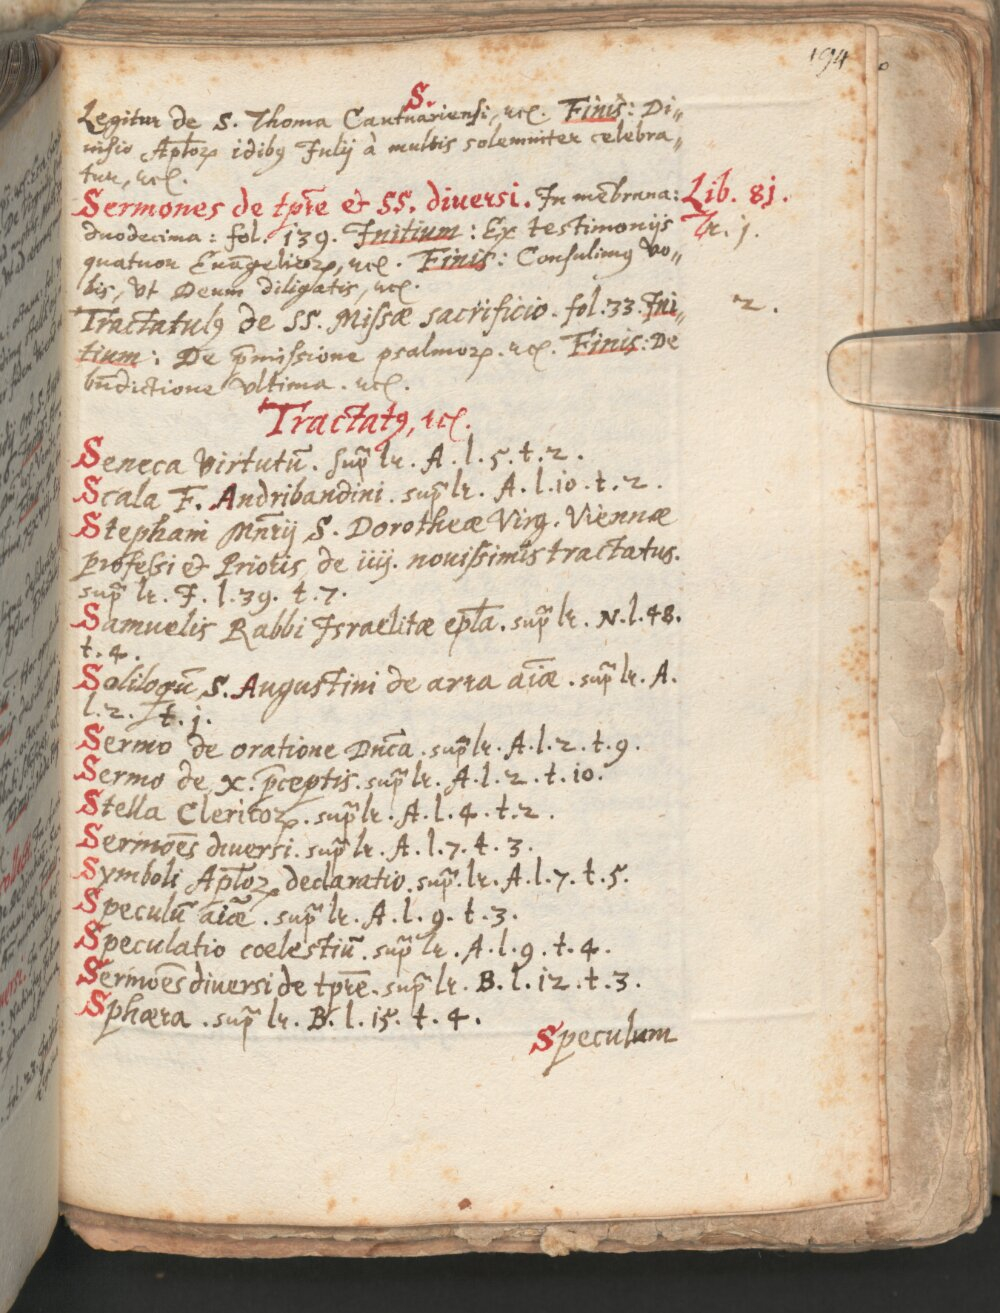 194
S.
Legitur de S. Thoma Cantuariensi, &c. Finis: Di„
uisio Aplõꝝ idibꝰ Julij à multis solemniter celebra„
tur, &c.
Sermones de tp̃re & SS. diuersi. In mẽbrana: Lib. 8j.
duodecima: fol. 139. Initium: Ex testimonijs Tr. j.
quatuor Euãgelioꝝ, &c. Finis: Consulimꝰ vo„
bis, vt Deum diligatis, &c.
Tractatulꝰ de SS. Missæ sacrificio. fol. 33. Ini„ 2.
tium: De p̃missione psalmoꝝ. &c. Finis: De
bñdictione vltima. &c.
Tractatꝰ, &c.
Seneca virtutũ. sup̃ lr. A. l. 5. t. 2.
Scala F. Andribandini. sup̃ lr. A. l. 10. t. 2.
Stephani Mñrij S. Dorotheæ Virg. Viennæ
professi & Prioris de iiij. nouissimis tractatus.
sup̃ lr. F. l. 39. t. 7.
Samuelis Rabbi Israelitæ ep̃la. sup̃ lr. N. l. 48.
t. 4.
Soliloqũ S. Augustini de arra aĩæ. sup̃ lr. A.
l. 2. t. j.
Sermo de oratione Dñca. sup̃ lr. A. l. 2. t. 9.
Sermo de X. p̃ceptis. sup̃ lr. A. l. 2. t. 10.
Stella Clericoꝝ. sup̃ lr. A. l. 4. t. 2.
Sermoẽs diuersi. sup̃ lr. A. l. 7. t. 3.
Symboli Aplõꝝ declaratio. sup̃. lr. A. l. 7. t. 5.
Speculũ aĩæ. sup̃ lr. A. l. 9. t. 3.
Speculatio cœlestiũ. sup̃ lr. A. l. 9. t. 4.
Sermoẽs diuersi de tp̃re. sup̃ lr. B. l. 12. t. 3.
Sphæra. sup̃ lr. B. l. 15. t. 4.
Speculum